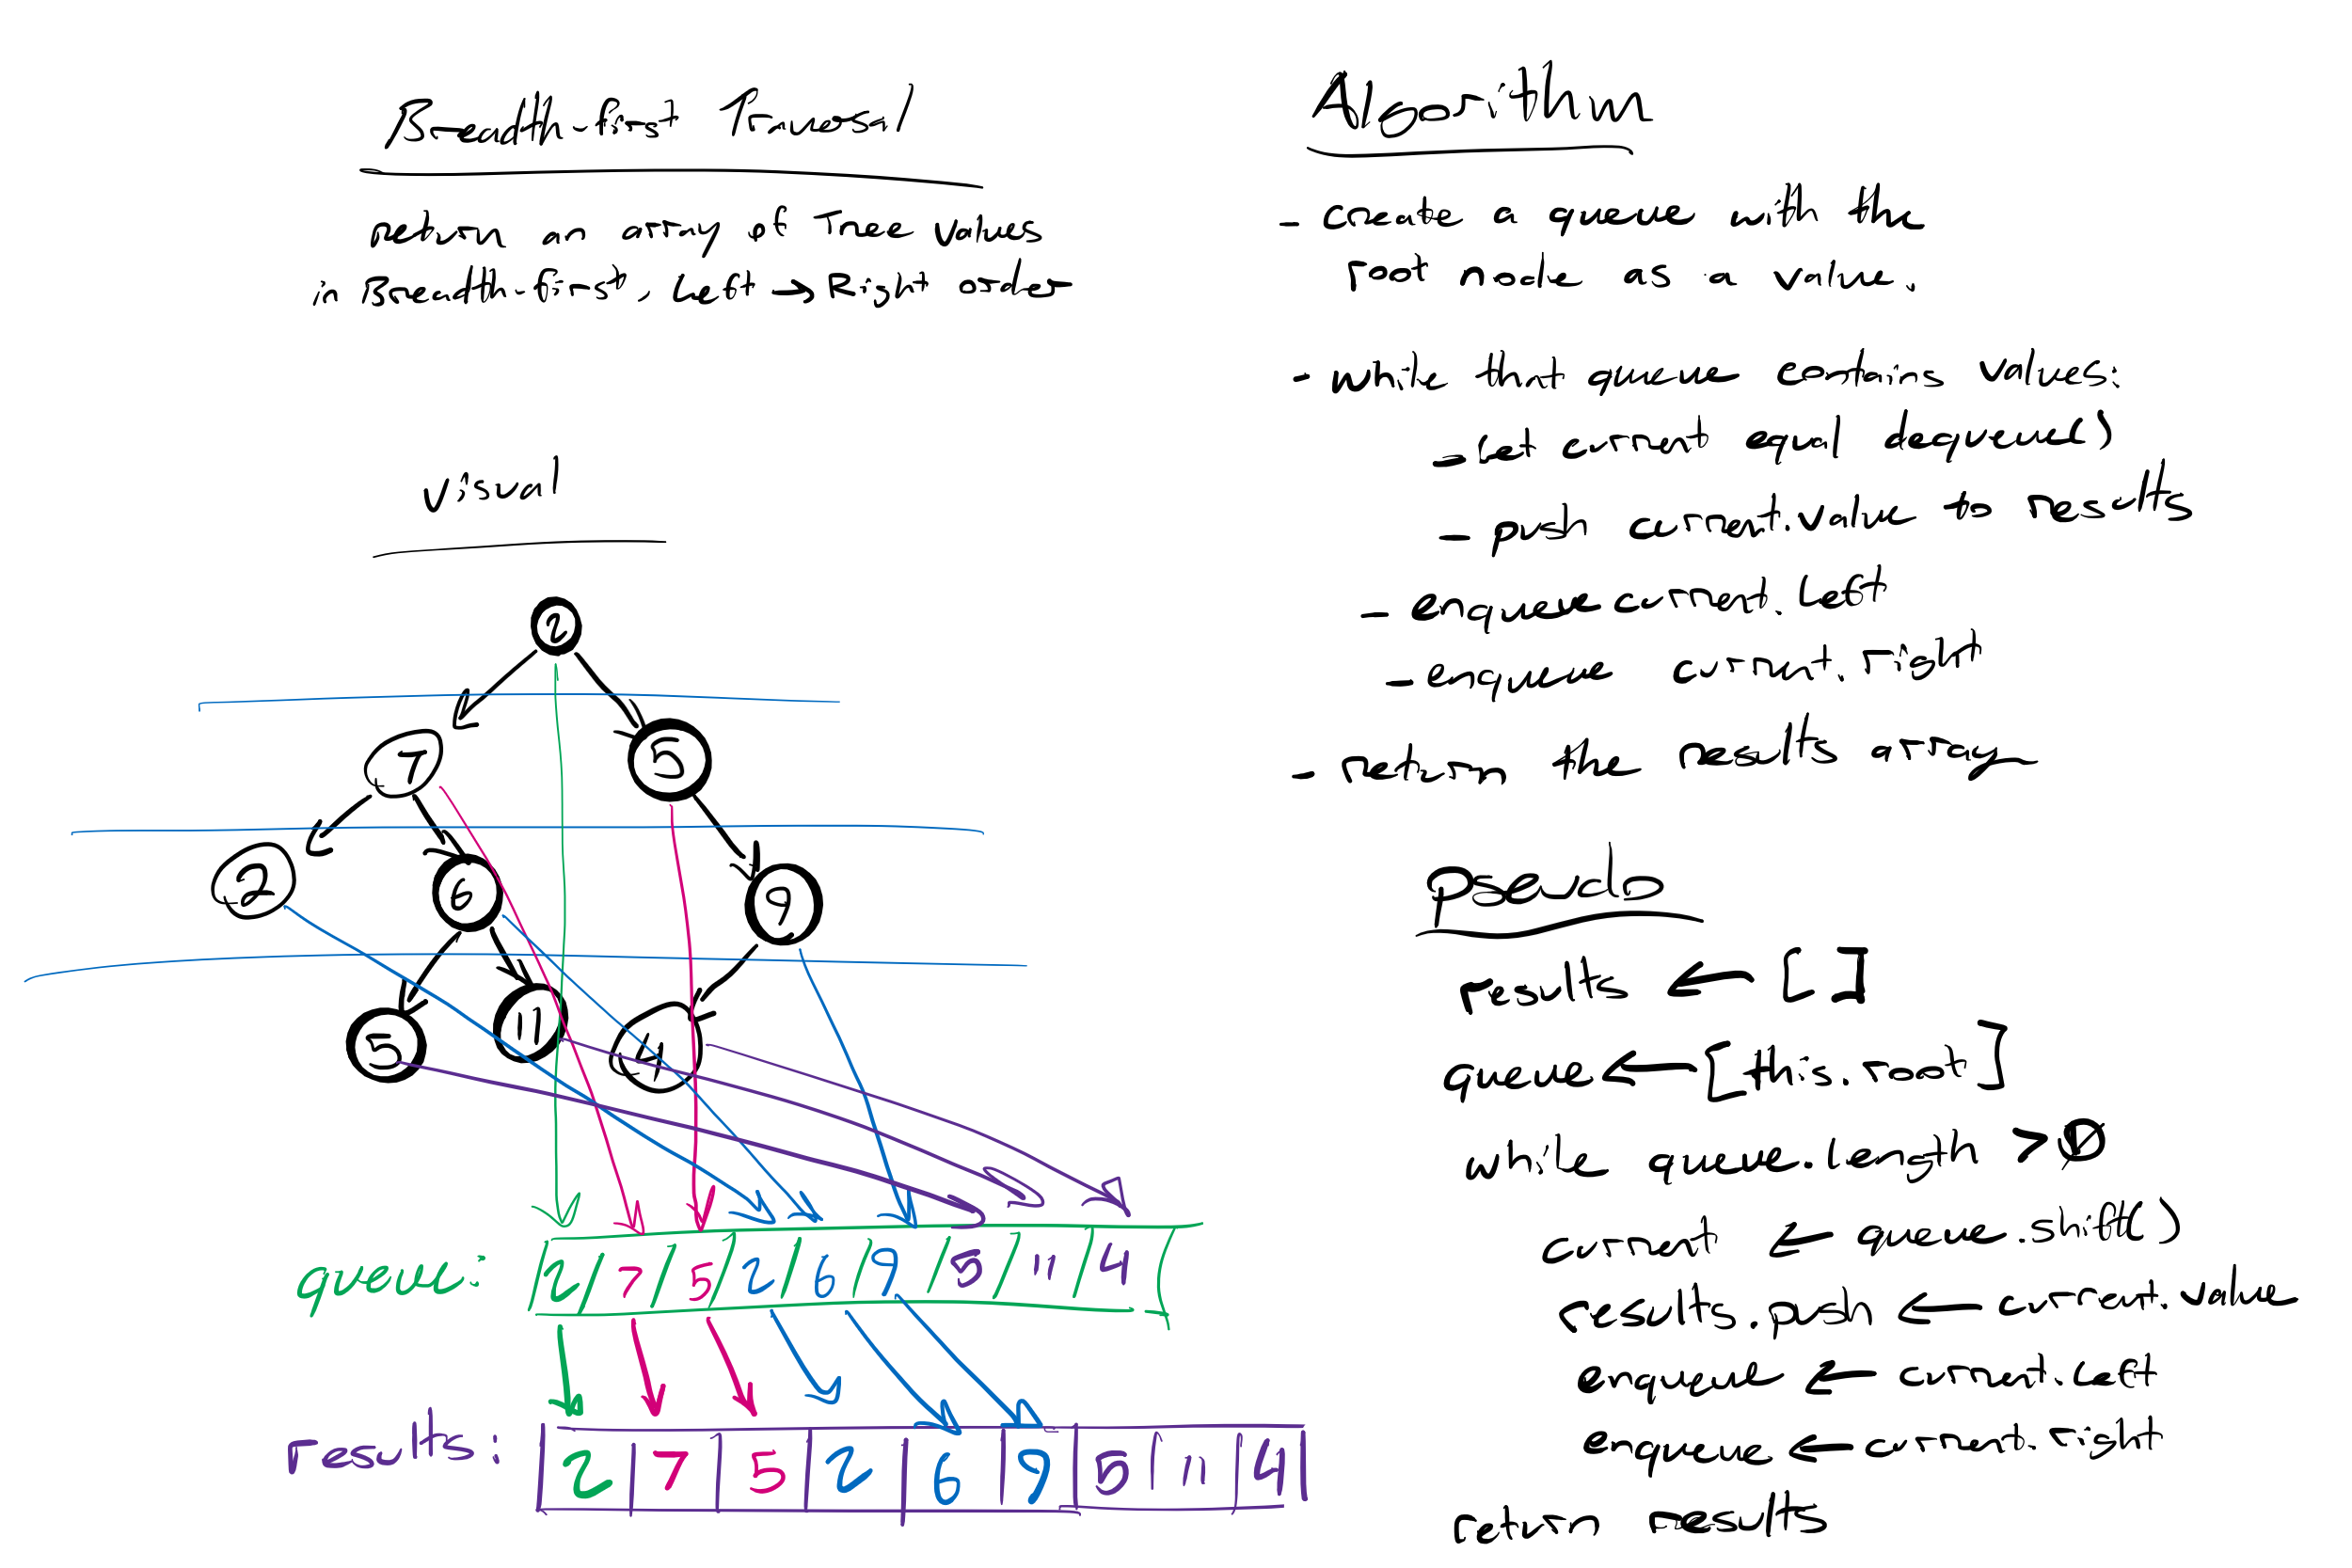 Breadth-first Traversal
return an array of Tree values
in Breadth-first, Left → Right order
visual
2
7 5
2 6 9
5 11 4
queue: 2 7 5 2 6 9 5 11 4
results: 2 7 5 2 6 9 5 11 4
Algorithm
- create a queue with the
root node as a value.
- while that queue contains values:
- Let current equal dequeue()
- push current.value to results
- enqueue current.left
- enqueue current.right
- return the results array
pseudo
results ← [ ]
queue ← [this.root]
while queue.length > 0
current ← queue.shift()
results.push ← current.value
enqueue ← current.left
enqueue ← current.right
return results